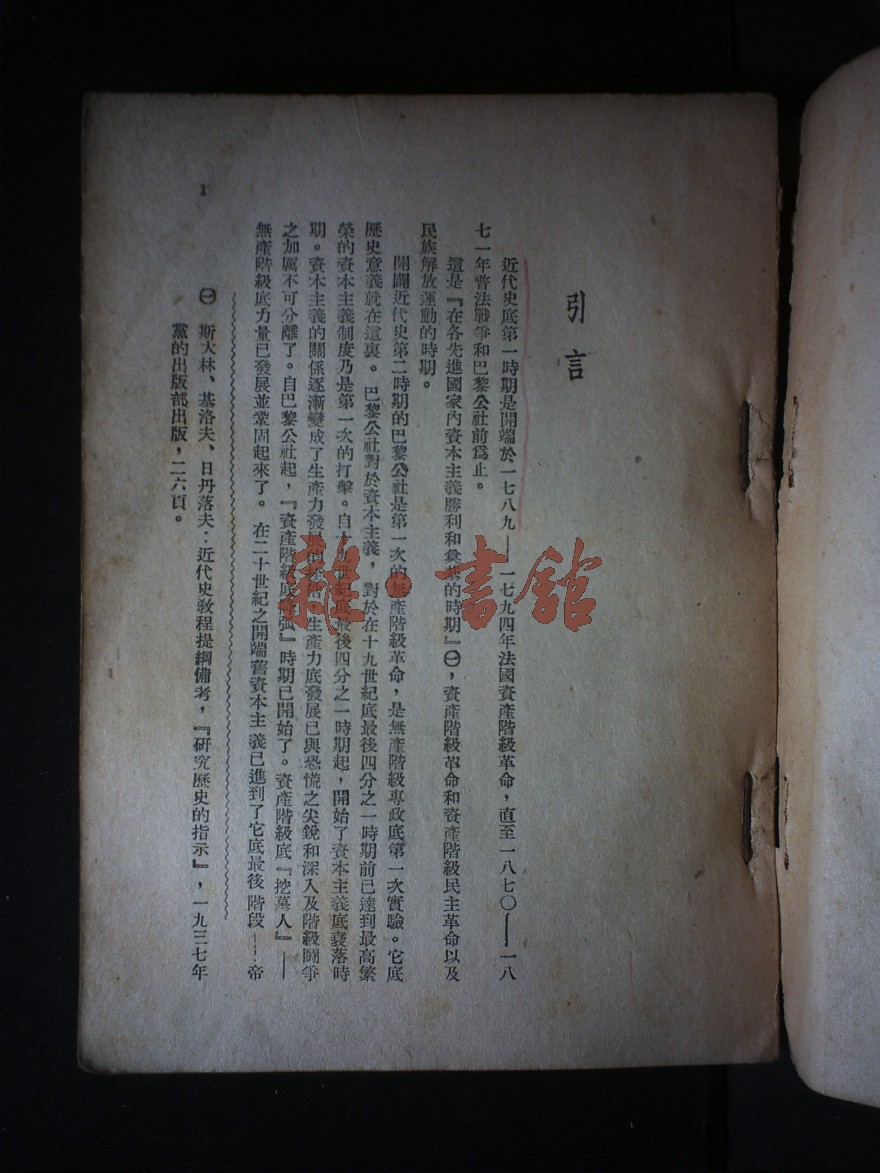 引言
近代史底第一時期是開端於一七八九——一七九四年法國資產階級革命，直至一八七〇——一八
七一年普法戰爭和巴黎公社前爲止。
這是『在各先進國家內資本主義勝利和奠基的時期』㊀，資產階級革命和資產階級民主革命以及
民族解放運動的時期。
開闢近代史第二時期的巴黎公社是第一次的無產階級革命，是無產階級專政底第一次實驗。它底
歷史意義就在這裏。巴黎公社對於資本主義，對於在十九世紀底最後四分之一時期前已達到最高繁
榮的資本主義制度乃是第一次的打擊。自十九世紀底最後四分之一時期起，開始了資本主義底衰落時
期。資本主義的關係逐漸變成了生產力發展的，生產力底發展已與恐慌之尖銳和深入及階級鬥爭
之加厲不可分離了。自巴黎公社起，『資產階級底』時期已開始了。資產階級底『挖墓人』——
無產階級底力量已發展並鞏固起來了。在二十世紀之開端舊資本主義已進到了它底最後階段——帝
㊀ 斯大林、基洛夫、日丹落夫：近代史敎程提綱備考，『研究歷史的指示』，一九三七年
黨的出版部出版，二六頁。
1
雜·書館